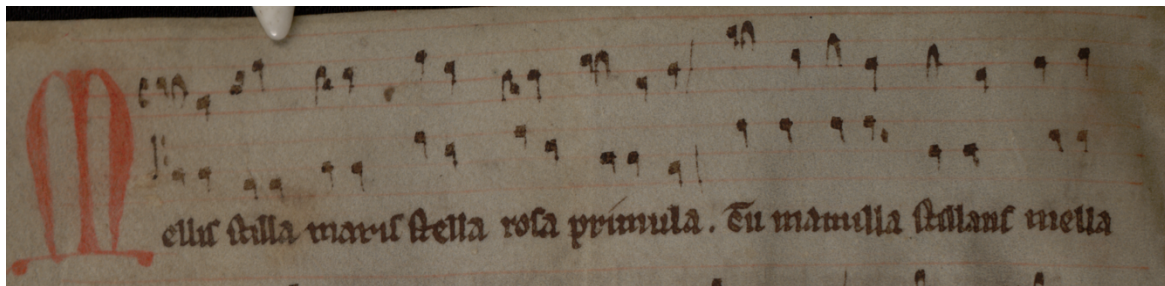 Mellis stilla maris stella rosa primula. Tu mamilla stillans mella